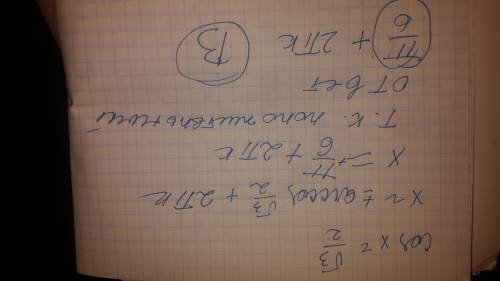 cos x = √3/2
x = ± arccos √3/2 + 2πk
x = ± π/6 + 2πk
т.к. положительный
ответ
π/6 + 2πk В